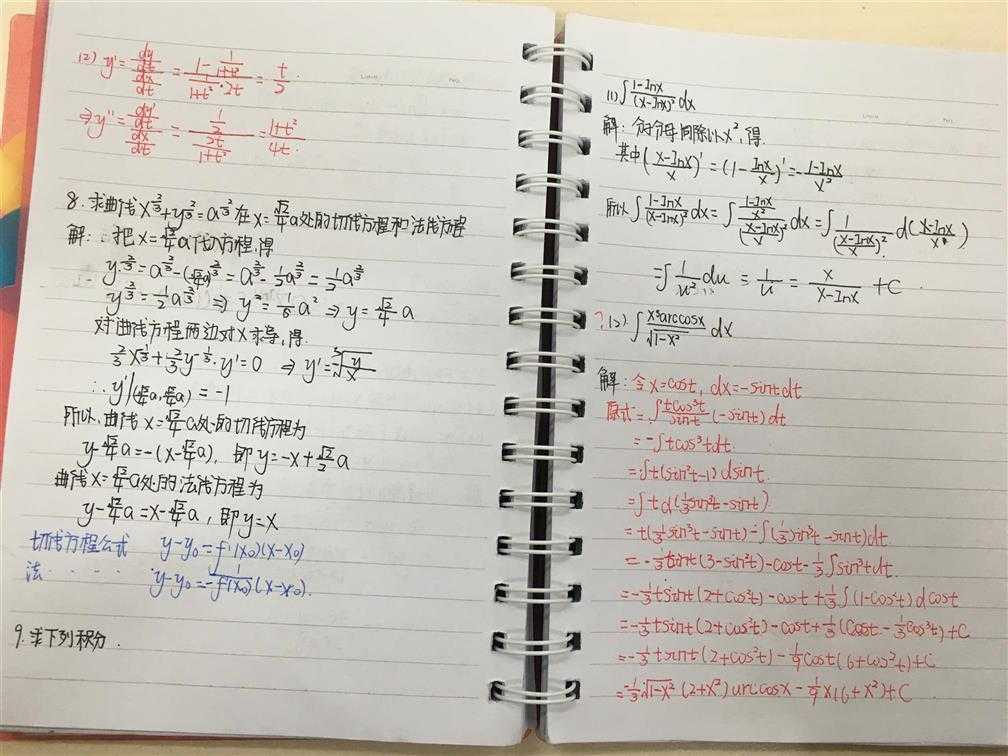 (2) y' = (dy/dt)/(dx/dt) = (1 - 1/(1+t²))/(1/(1+t²)·2t) = t/2.
⇒ y'' = (dy'/dt)/(dx/dt) = (1/2)/(2t/(1+t²)) = (1+t²)/(4t).
8. 求曲线x^(2/3)+y^(2/3)=a^(2/3)在x=(√2/4)a处的切线方程和法线方程
解: 把x=(√2/4)a代入方程,得
y^(2/3)=a^(2/3)-((√2/4)a)^(2/3)=a^(2/3)-(1/2)a^(2/3)=(1/2)a^(2/3)
y^(2/3)=(1/2)a^(2/3) ⇒ y²=(1/8)a² ⇒ y=(√2/4)a
对曲线方程两边对x求导,得.
(2/3)x^(-1/3)+(2/3)y^(-1/3)·y'=0 ⇒ y'=-∛(y/x)
∴y'|((√2/4)a,(√2/4)a) = -1
所以,曲线x=(√2/4)a处的切线方程为
y-(√2/4)a=-(x-(√2/4)a), 即y=-x+(√2/2)a
曲线x=(√2/4)a处的法线方程为
y-(√2/4)a=x-(√2/4)a, 即y=x
切线方程公式 y-y₀=f'(x₀)(x-x₀)
法····· y-y₀=-1/f'(x₀)(x-x₀).
9. 求下列积分.
(1) ∫(1-lnx)/(x-lnx)² dx
解: 分子分母同除以x²,得.
其中((x-lnx)/x)'=(1-lnx/x)'=-(1-lnx)/x²
所以∫(1-lnx)/(x-lnx)²dx=∫((1-lnx)/x²)/((x-lnx)/x)²dx=∫1/((x-lnx)/x)² d((x-lnx)/x)
=∫1/u² du = 1/u = x/(x-lnx) +C
? (2). ∫(x³arccosx)/√(1-x²) dx
解: 令x=cost, dx=-sintdt
原式=∫(tcos³t/sint)(-sint)dt
=-∫tcos³tdt.
=∫t(sin²t-1)dsint.
=∫td((1/3)sin³t-sint)
=t((1/3)sin³t-sint)-∫((1/3)sin³t-sint)dt
=-(1/3)tsint(3-sin²t)-cost-(1/3)∫sin³tdt.
=-(1/3)tsint(2+cos²t)-cost+(1/3)∫(1-cos²t)dcost
=-(1/3)tsint(2+cos²t)-cost+(1/3)(cost-(1/3)cos³t)+C
=-(1/3)tsint(2+cos²t)-(1/9)cost(6+cos²t)+C
=-(1/3)√(1-x²)(2+x²)arccosx-(1/9)x(6+x²)+C